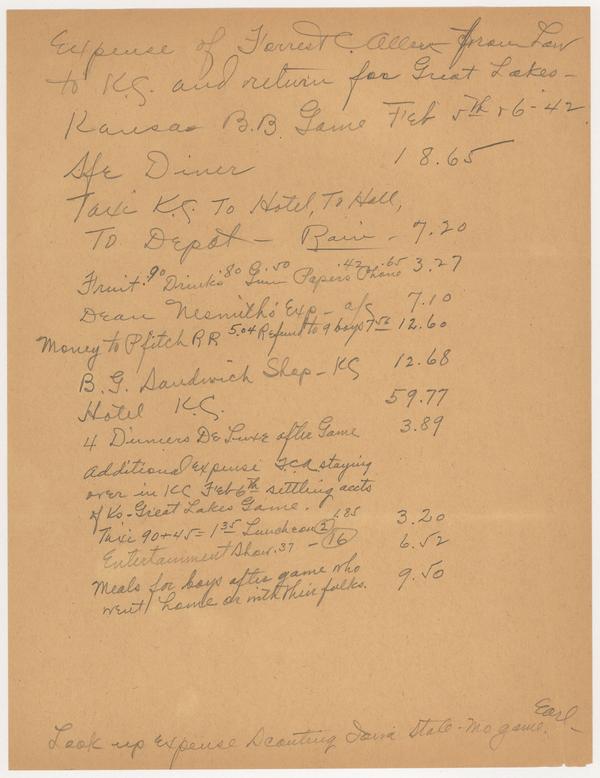 Expense of Forrest C. Allen from Law
to K.C. and return for Great Lakes -
Kansas B.B. Game Feb 5th & 6 - 42.
Sfe Diner 18.65
Taxi K.C. To Hotel, To Hall,
To Depot - Rain - 7.20
Fruit .90 Drinks .80 Gum .50 Papers .42 Phone .65 3.27
Dean Nesmith's Exp - a/c 7.10
Money to Pfitch RR 5.04 Refund to 9 boys 7.56 12.60
B.G. Sandwich Shop - KC 12.68
Hotel K.C. 59.77
4 Dinners De Luxe after Game 3.89
additional expense F.C.A. staying
over in KC Feb 6th settling accts
of Ks - Great Lakes Game.
Taxi 90 + 45 = 1.35 Luncheon (2) 1.85 3.20
Entertainment Show .37 - (16) 6.52
Meals for boys after game who 9.50
went home or with their folks.
Earl -
Look up expense Scouting Iowa State - Mo game.